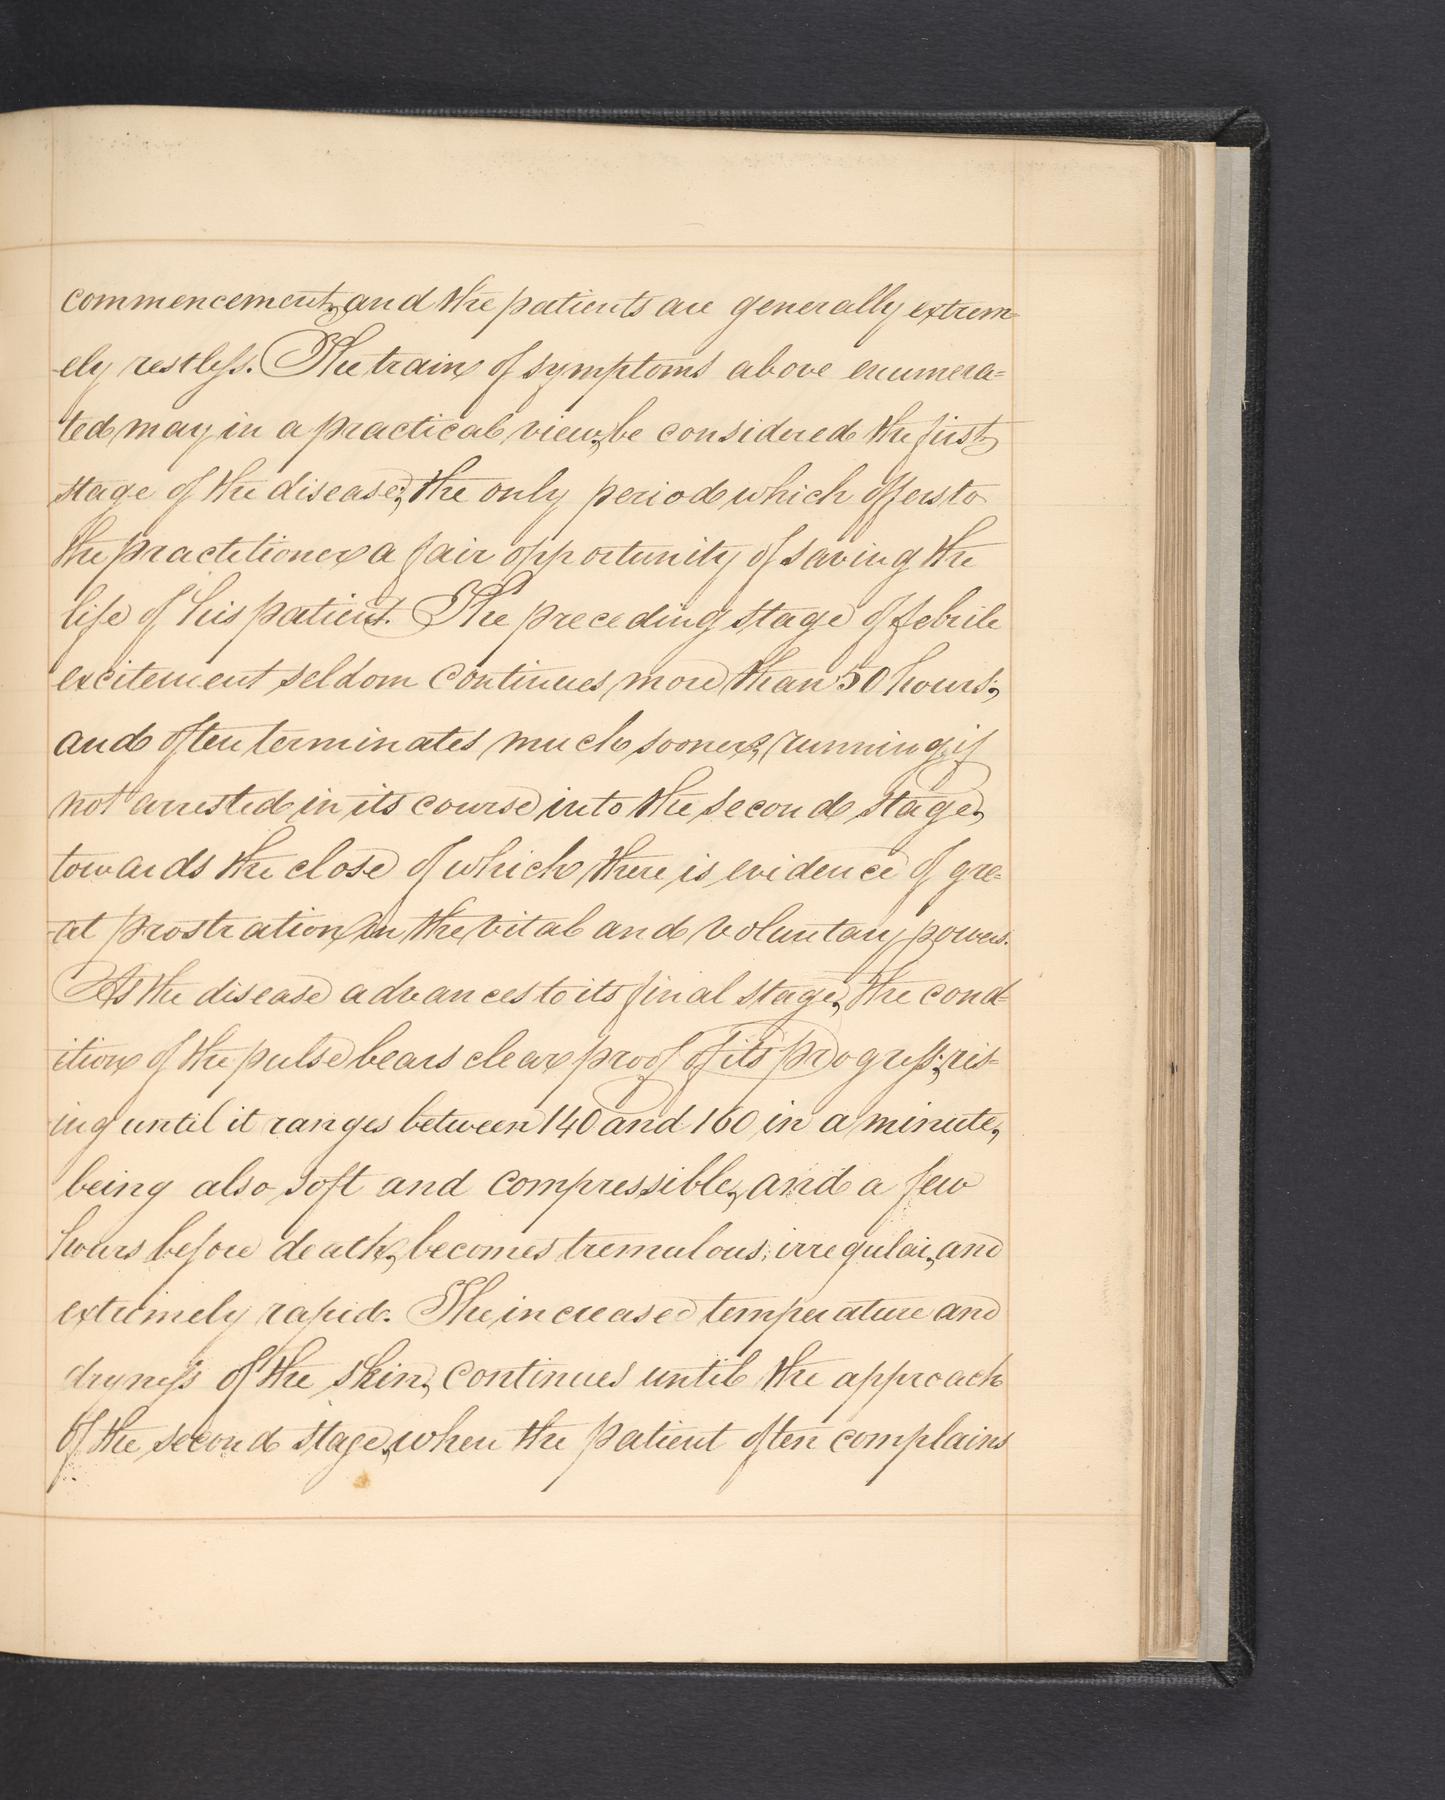 commencement, and the patients are generally extrem=
ely restless. The train of symptoms above enumera=
ted may in a practical view, be considered the first
stage of the disease; the only period which offers to
the practitioner a fair opportunity of saving the
life of his patient. The preceding stage of febrile
excitement seldom continues more than 50 hours,
and often terminates much sooner, running, if
not arrested in its course into the second stage,
towards the close of which there is evidence of gre=
at prostration in the vital and voluntary powers.
As the disease advances to its final stage, the cond=
ition of the pulse bears clear proof of its progress; ris=
ing until it ranges between 140 and 160 in a minute,
being also soft and compressible, and a few
hours before death, becomes tremulous, irregular, and
extremely rapid. The increased temperature and
dryness of the skin, continues until the approach
of the second stage, when the patient often complains